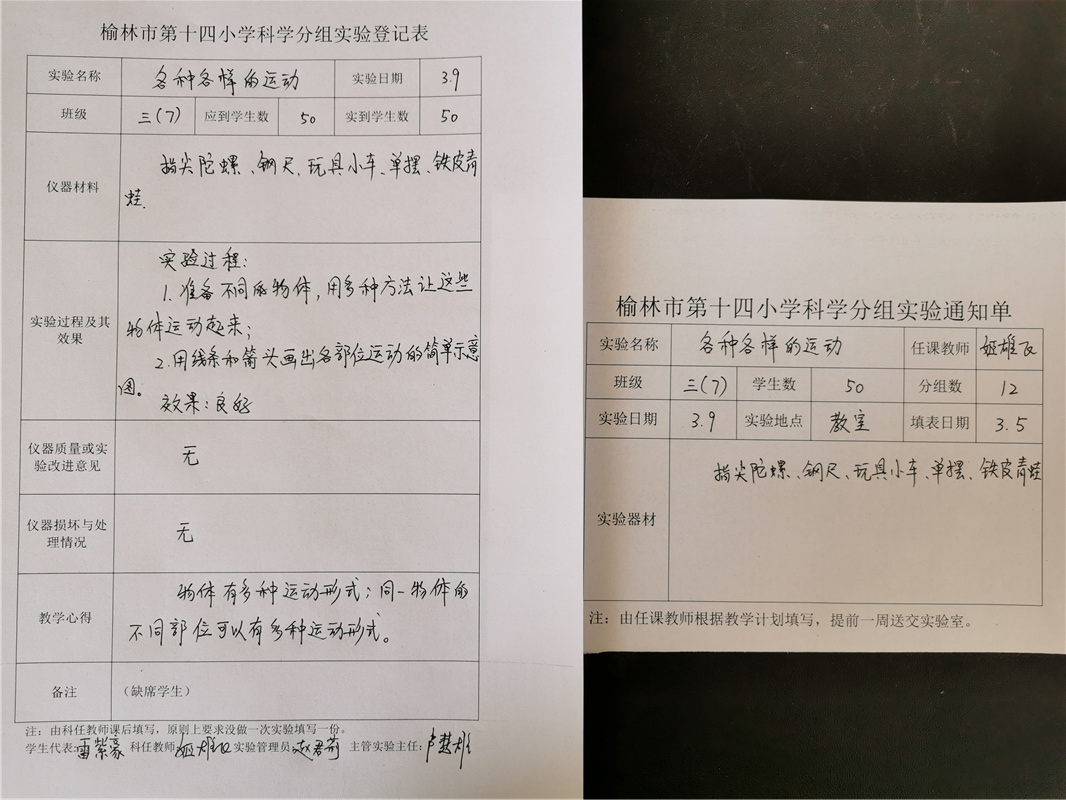 榆林市第十四小学科学分组实验登记表
实验名称 各种各样的运动 实验日期 3.9
班级 三(7) 应到学生数 50 实到学生数 50
仪器材料
指尖陀螺、钢尺、玩具小车、单摆、铁皮青
蛙.
实验过程及其
效果
实验过程:
1. 准备不同的物体,用多种方法让这些
物体运动起来;
2.用线条和箭头画出各部位运动的简单示意
图。
效果:良好
仪器质量或实
验改进意见
无
仪器损坏与处
理情况
无
教学心得
物体有多种运动形式;同一物体的
不同部位可以有多种运动形式。
备注 (缺席学生)
注:由科任教师课后填写,原则上要求没做一次实验填写一份。
学生代表:雷紫豪 科任教师:姬雄飞 实验管理员:赵君荷 主管实验主任:卢楚雄
榆林市第十四小学科学分组实验通知单
实验名称 各种各样的运动 任课教师 姬雄飞
班级 三(7) 学生数 50 分组数 12
实验日期 3.9 实验地点 教室 填表日期 3.5
实验器材
指尖陀螺、钢尺、玩具小车、单摆、铁皮青蛙
注:由任课教师根据教学计划填写,提前一周送交实验室。